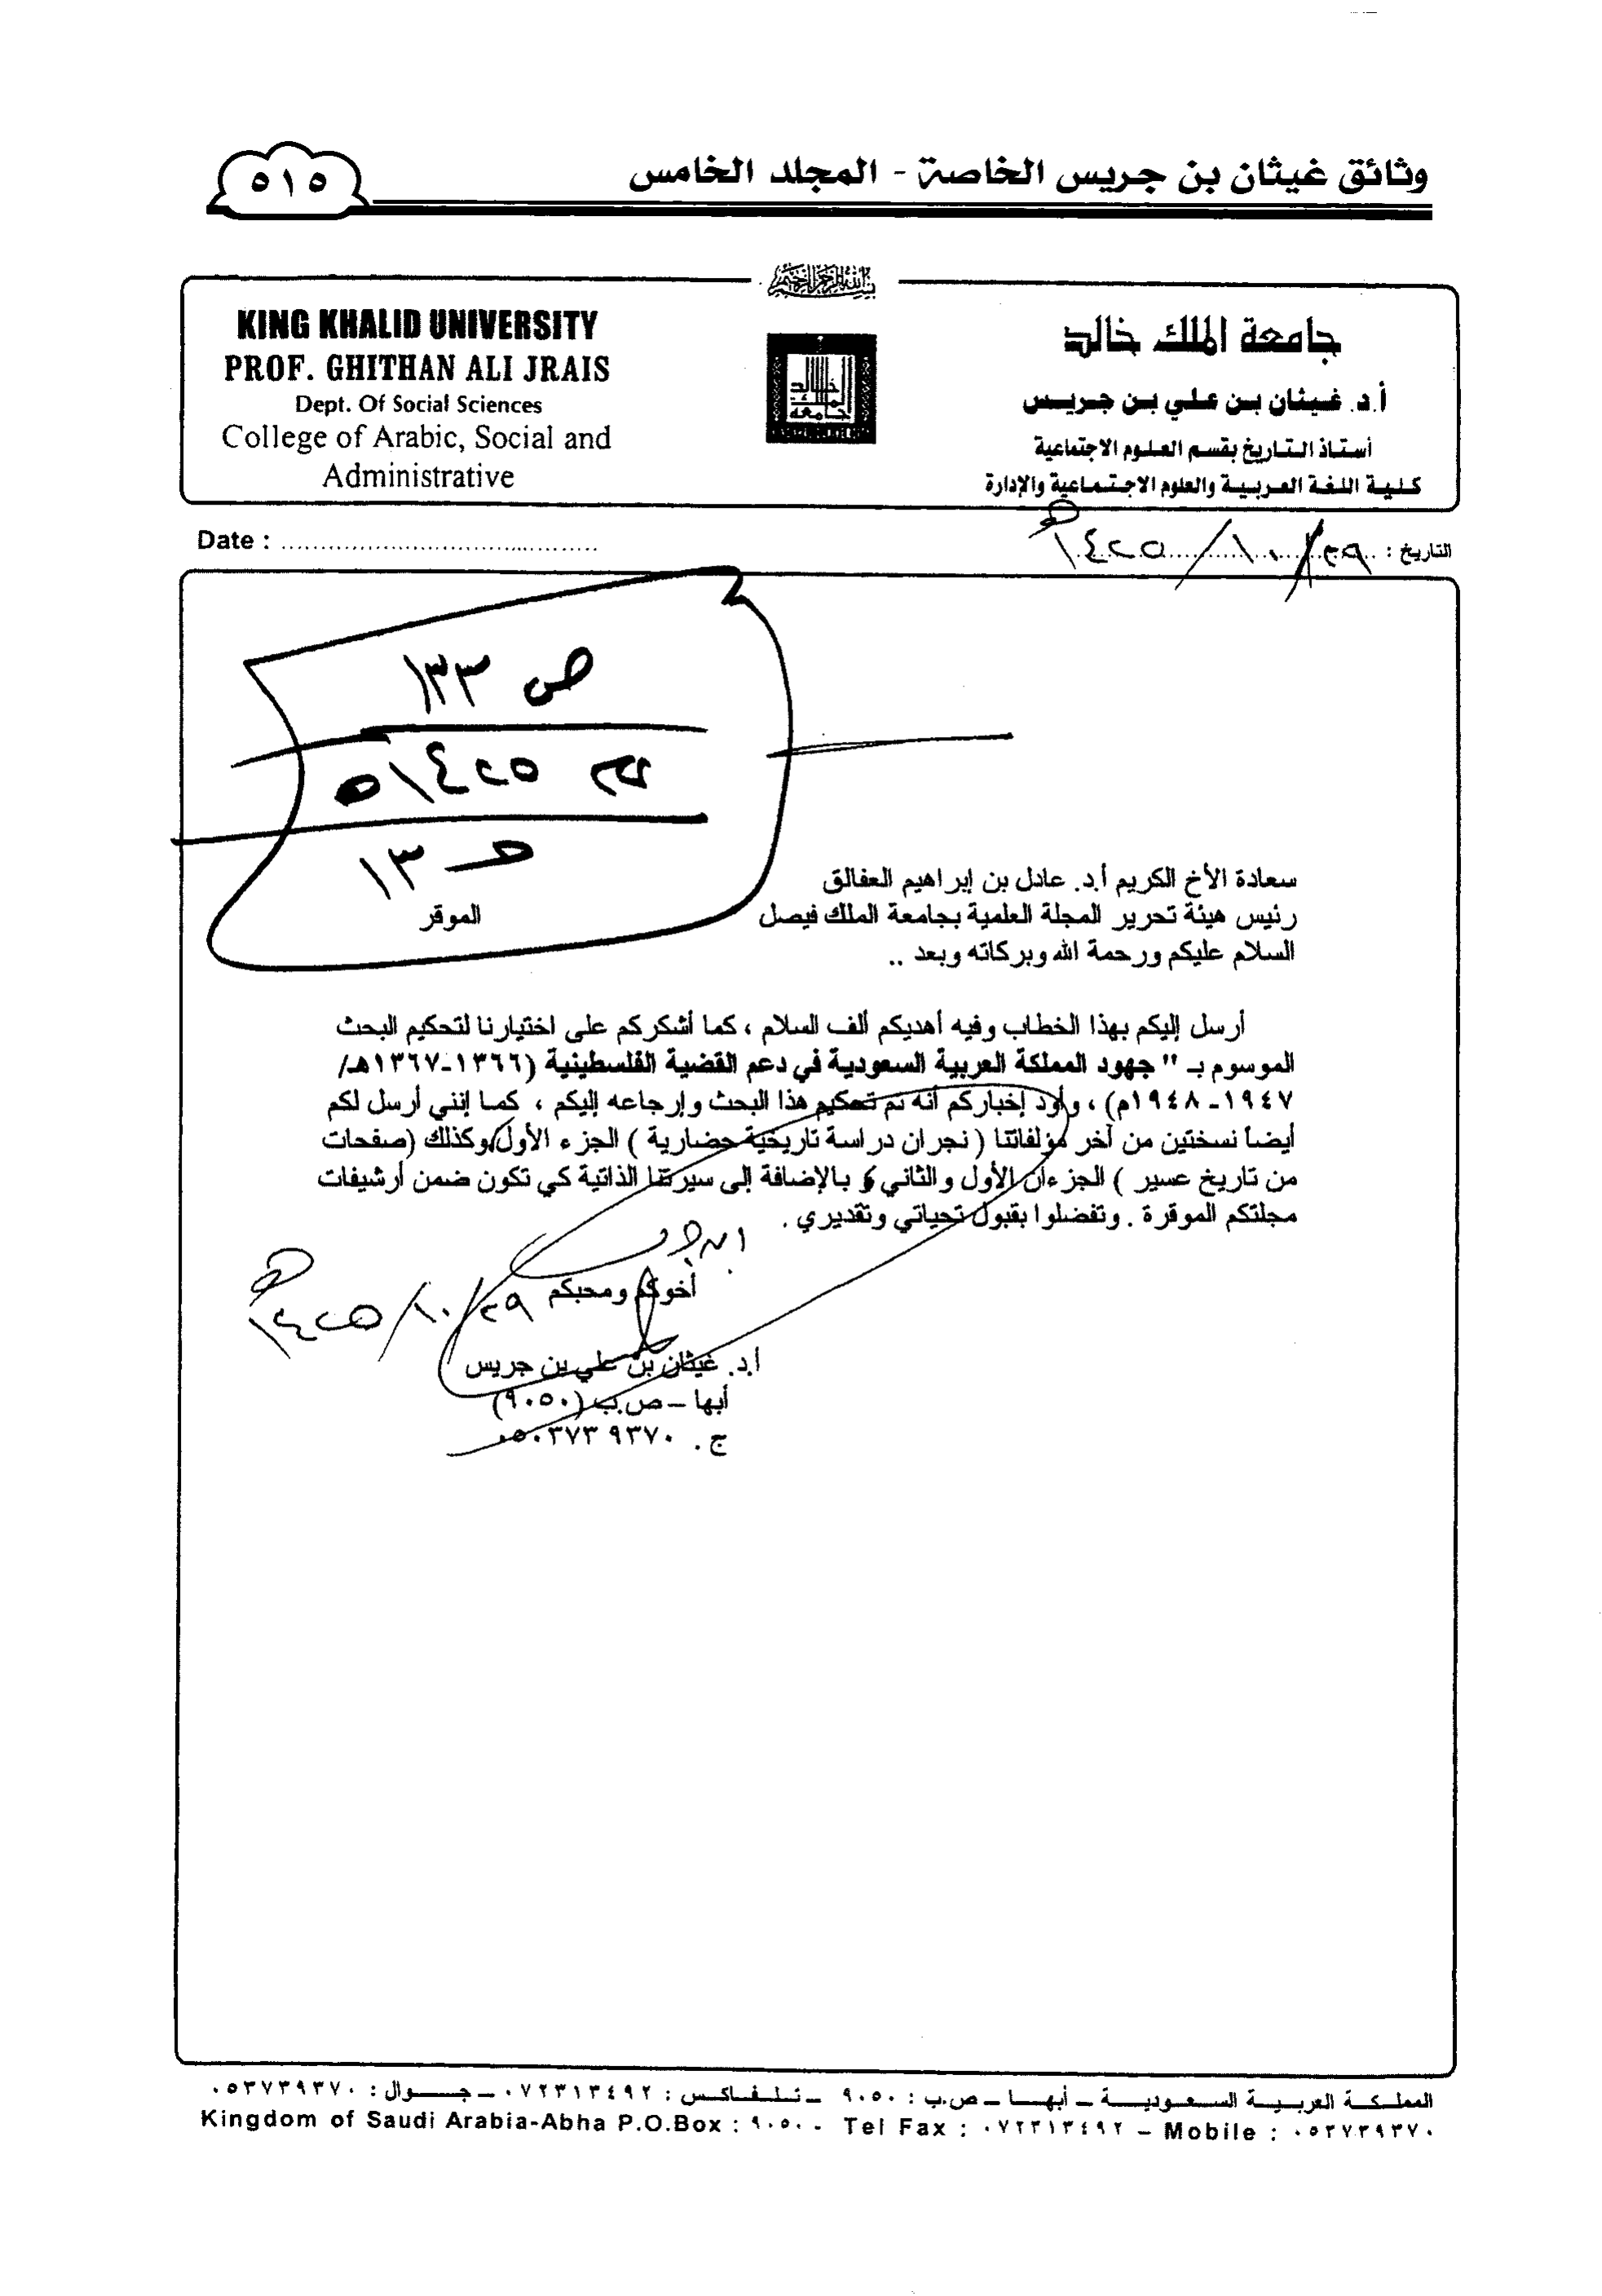 وثائق غيثان بن جريس الخاصة - المجلد الخامس
٥١٥
بسم الله الرحمن الرحيم
KING KHALID UNIVERSITY
PROF. GHITHAN ALI JRAIS
Dept. Of Social Sciences
College of Arabic, Social and
Administrative
جامعة الملك خالد
أ.د. غيثان بن علي بن جريس
أستاذ التاريخ بقسم العلوم الاجتماعية
كلية اللغة العربية والعلوم الاجتماعية والإدارة
التاريخ : ٢٩/١٠/١٤٢٥هـ
Date :
ص ١٣٣
١٤٢٥
١٣
سعادة الأخ الكريم أ.د. عادل بن إبراهيم العفالق
رئيس هيئة تحرير المجلة العلمية بجامعة الملك فيصل الموقر
السلام عليكم ورحمة الله وبركاته وبعد ..
أرسل إليكم بهذا الخطاب وفيه أهديكم ألف السلام ، كما أشكركم على اختيارنا لتحكيم البحث
الموسوم بـ " جهود المملكة العربية السعودية في دعم القضية الفلسطينية (١٣٦٦-١٣٦٧هـ/
١٩٤٧-١٩٤٨م) ، وأود إخباركم أنه تم تحكيم هذا البحث وإرجاعه إليكم ، كما إنني أرسل لكم
أيضاً نسختين من آخر مؤلفاتنا ( نجران دراسة تاريخية حضارية ) الجزء الأول وكذلك (صفحات
من تاريخ عسير ) الجزءان الأول والثاني ، بالإضافة إلى سيرتنا الذاتية كي تكون ضمن أرشيفات
مجلتكم الموقرة . وتفضلوا بقبول تحياتي وتقديري .
أخوكم ومحبكم
٢٩/١٠/١٤٢٥هـ
أ.د. غيثان بن علي بن جريس
أبها – ص.ب (٩٠٥٠)
ج . ٠٥٠٣٧٣٩٣٧٠
المملكة العربية السعودية – أبها – ص.ب : ٩٠٥٠ – تلفاكس : ٠٧٢٣١٣٤٩٢ – جوال : ٠٥٣٧٣٩٣٧٠
Kingdom of Saudi Arabia-Abha P.O.Box : ٩٠٥٠ - Tel Fax : ٠٧٢٣١٣٤٩٢ – Mobile : ٠٥٣٧٣٩٣٧٠